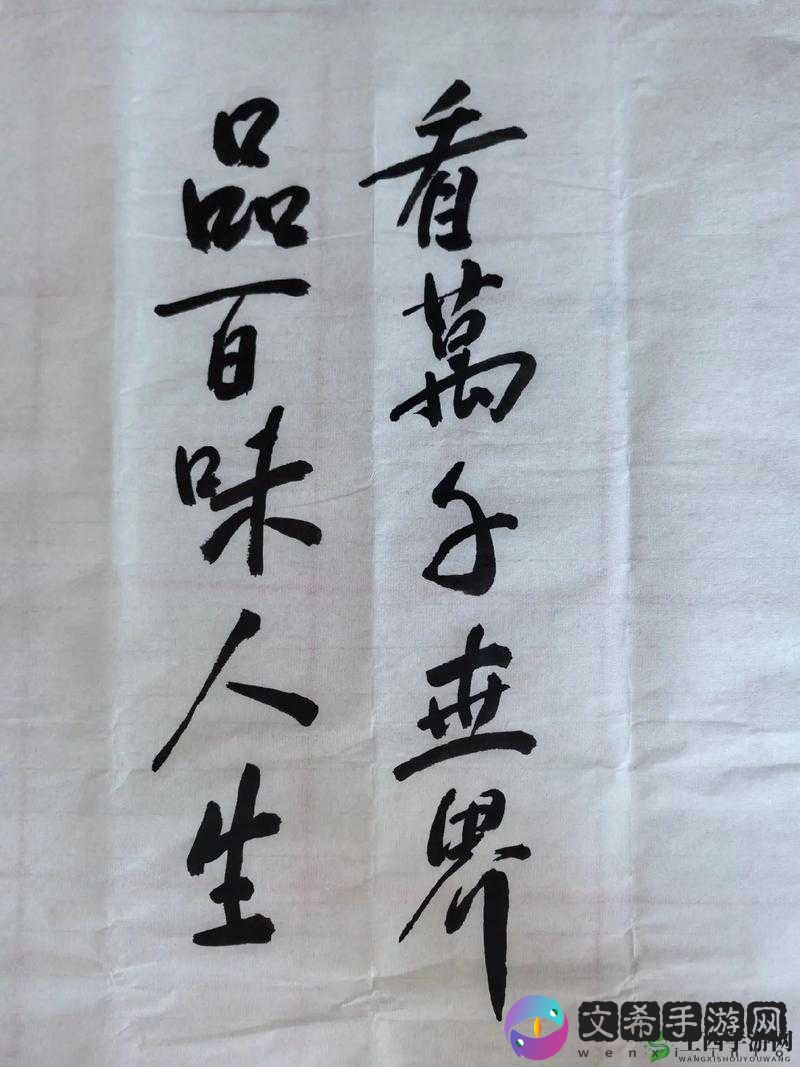 看萬千世界
品百味人生
文希手游网
WANGXISHOUYOUWANG